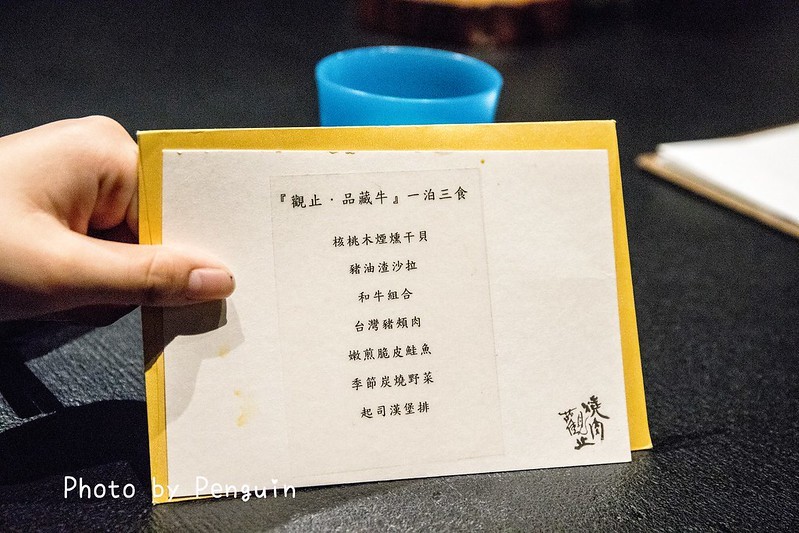 『觀止．品藏牛』一泊三食
核桃木煙燻干貝
豬油渣沙拉
和牛組合
台灣豬頰肉
嫩煎脆皮鮭魚
季節炭燒野菜
起司漢堡排
燒肉
觀止
Photo by Penguin